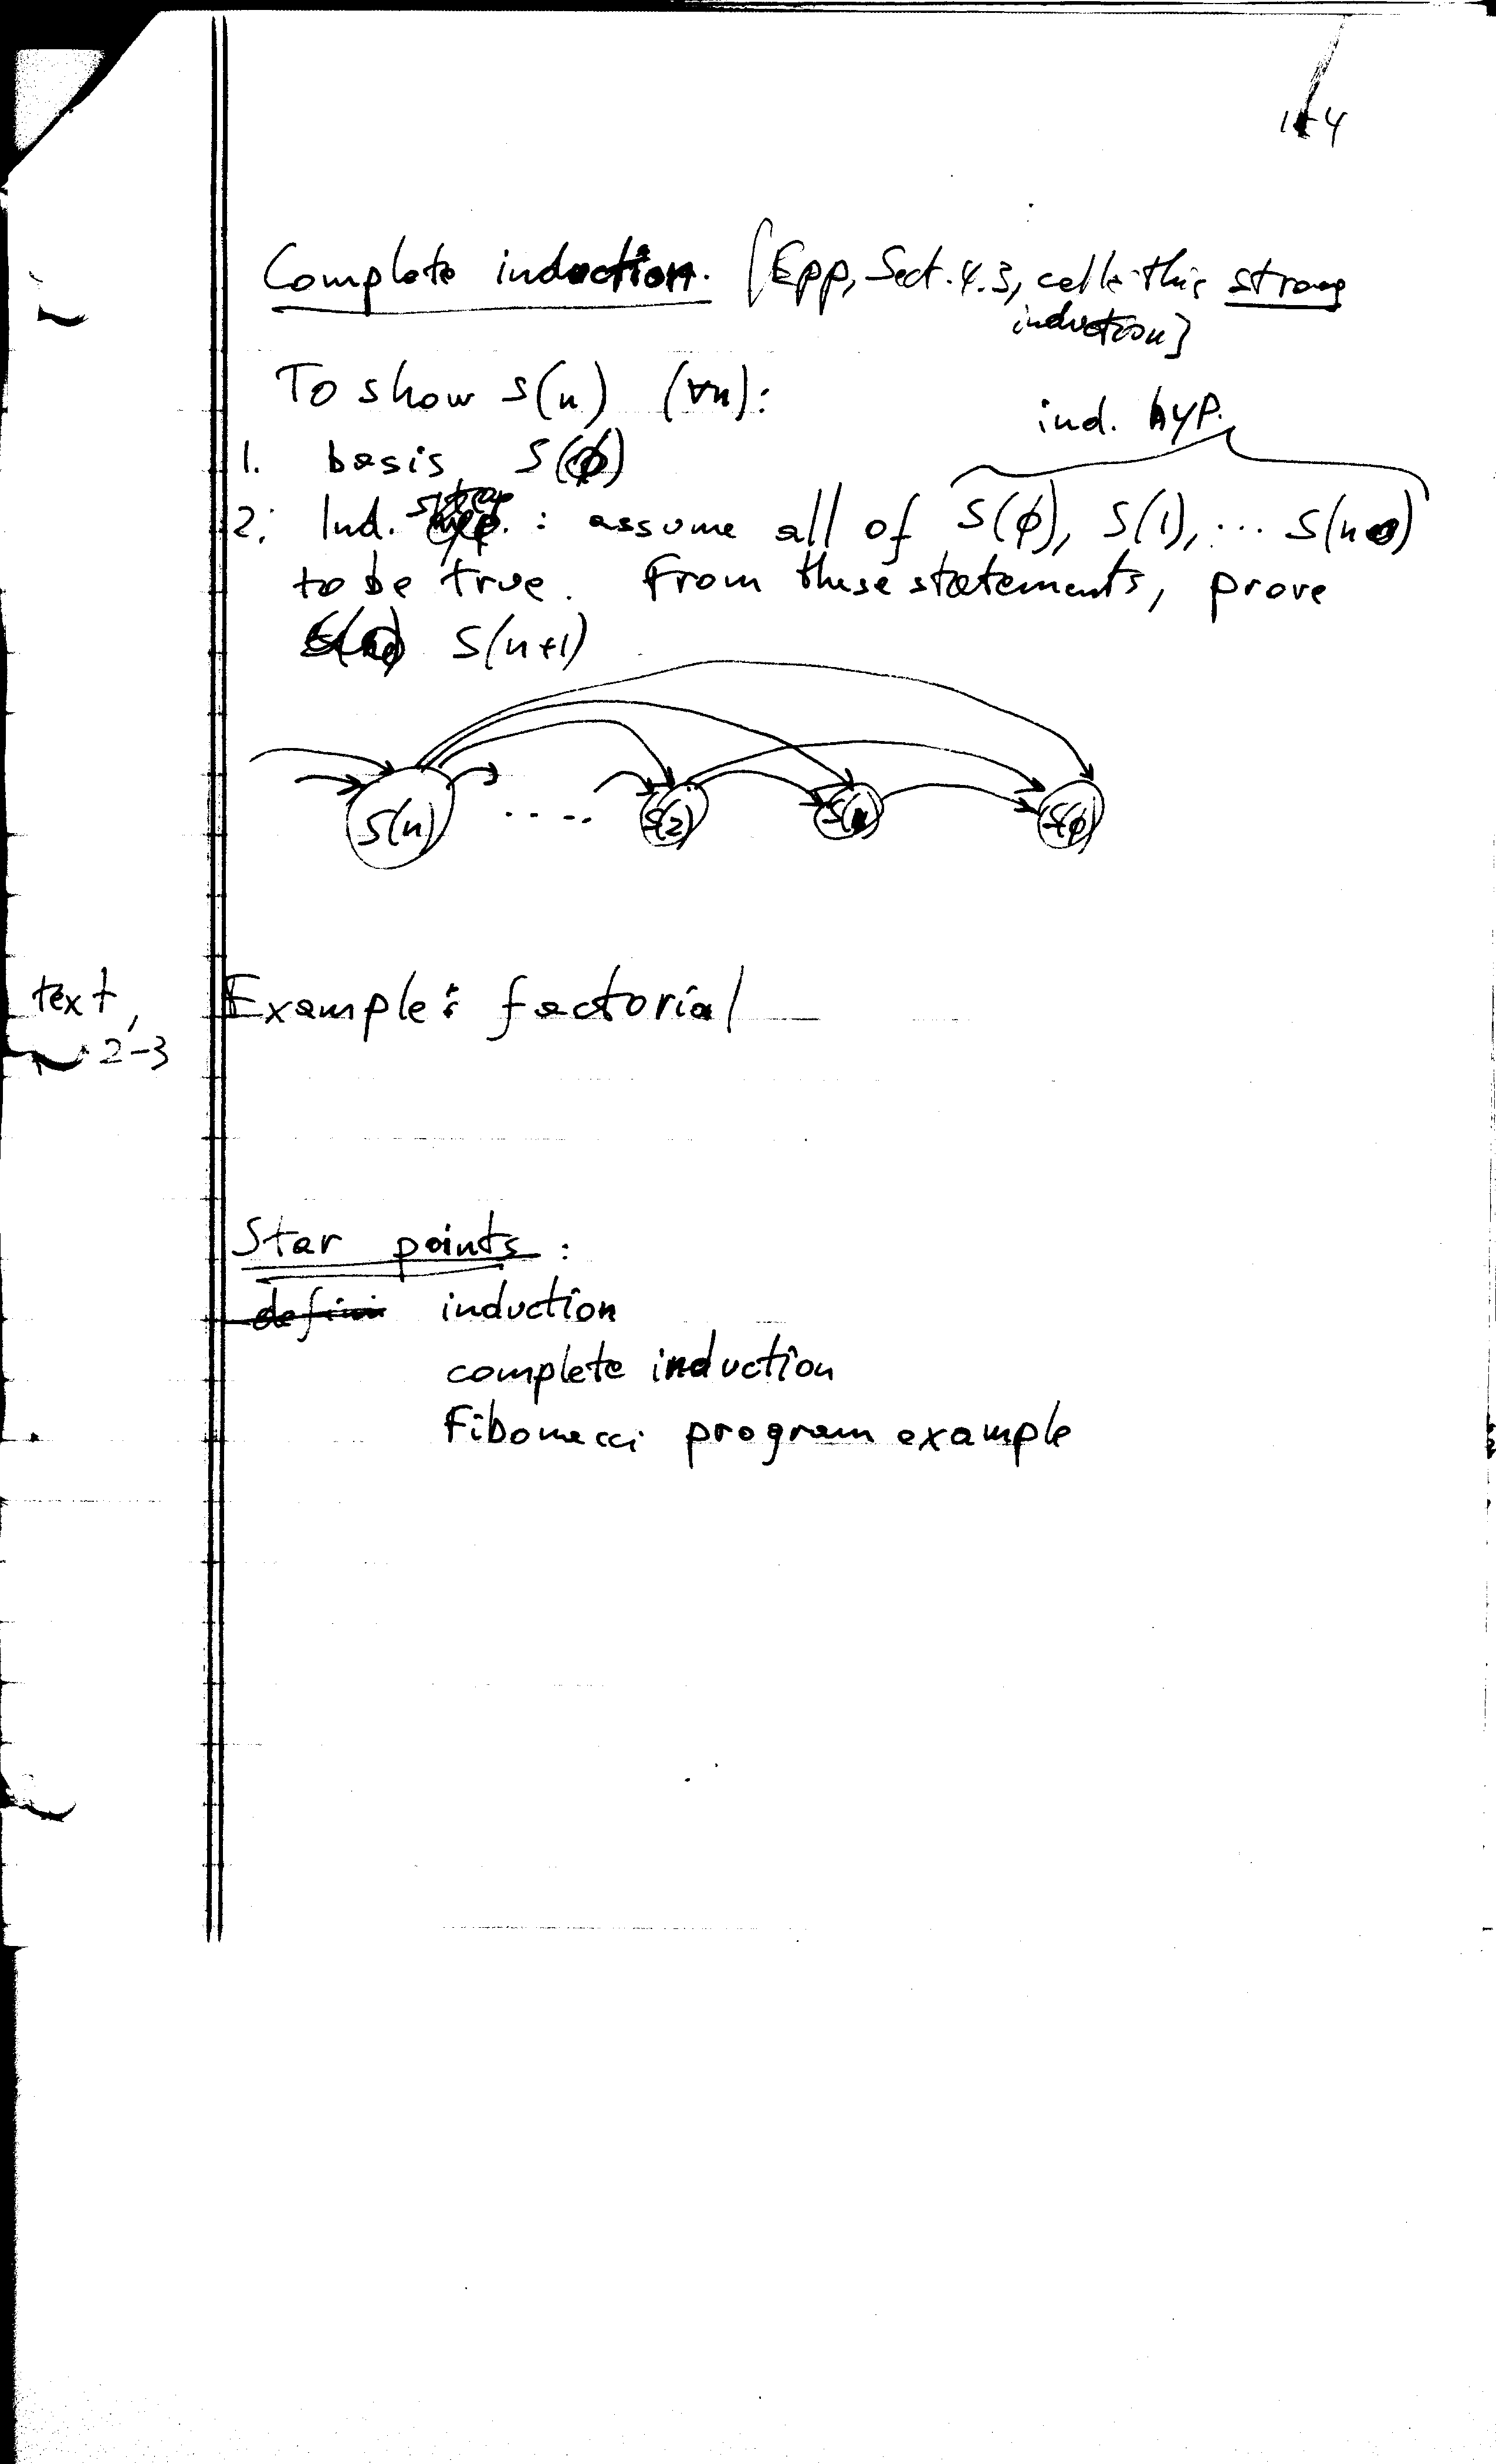 Complete induction. [Epp, Sect. 4.3, calls this strong
induction]
To show S(n) (∀n):
ind. hyp.
1. basis S(φ)
2. Ind. step : assume all of S(φ), S(1), ... S(n)
to be true. From these statements, prove
S(n+1)
S(n) .... S(2) S(1) S(φ)
text, Example: factorial
2-3
Star points :
defini induction
complete induction
Fibonacci program example